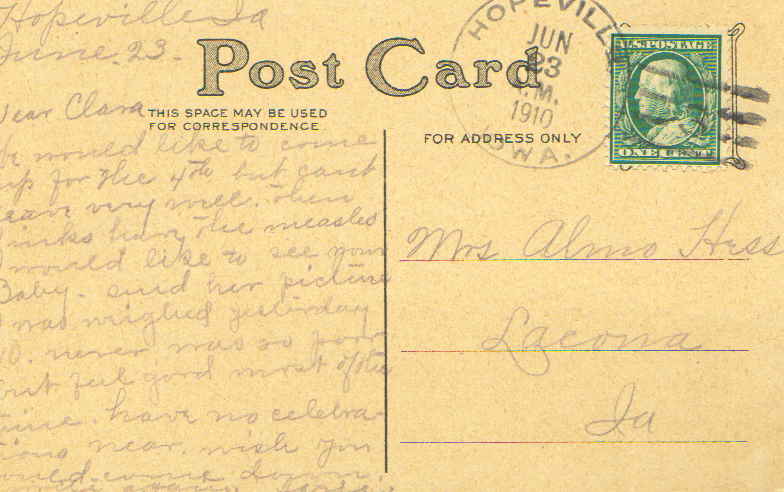 Hopeville Ia
June 23.
Post Card
HOPEVILLE
JUN
23
M.
1910
IOWA.
U.S. POSTAGE
ONE CENT
THIS SPACE MAY BE USED
FOR CORRESPONDENCE
FOR ADDRESS ONLY
Dear Clara
We would like to come
up for the 4th but cant
leave very well. then
have the measles
I would like to see your
Baby. send her picture
I was weighed yesterday
never was so poor
but feel good most of the
time. have no celebra-
tions near. wish you
would come down.
Mrs Almo Hess
Lacona
Ia